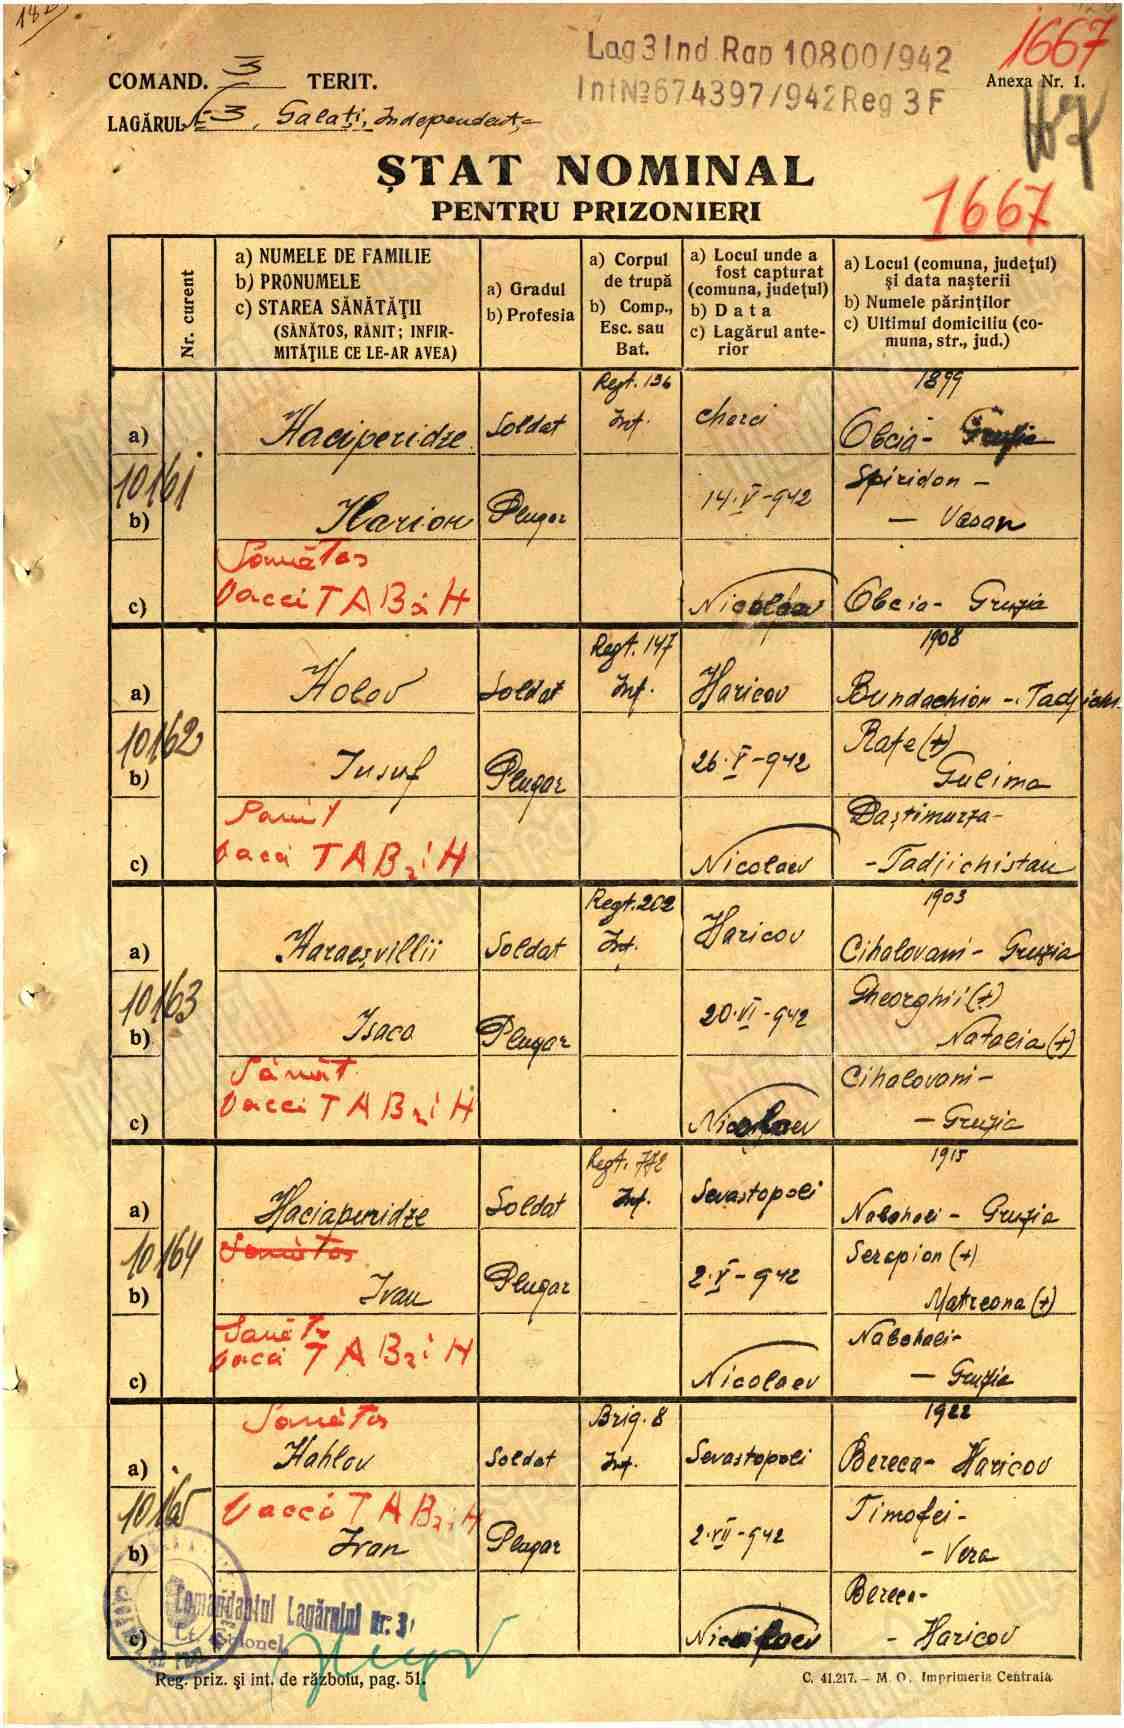 Lag 3 Ind. Rap 10800/942
Int № 674397/942 Reg 3 F
1667
COMAND. 3 TERIT.
Anexa Nr. 1.
LAGĂRUL № 3, Galați, Independența
167
ȘTAT NOMINAL
PENTRU PRIZONIERI
1667
Nr. curent
a) NUMELE DE FAMILIE
b) PRONUMELE
c) STAREA SĂNĂTĂȚII
(SĂNĂTOS, RĂNIT; INFIR-
MITĂȚILE CE LE-AR AVEA)
a) Gradul
b) Profesia
a) Corpul
de trupă
b) Comp.,
Esc. sau
Bat.
a) Locul unde a
fost capturat
(comuna, județul)
b) Data
c) Lagărul ante-
rior
a) Locul (comuna, județul)
și data nașterii
b) Numele părinților
c) Ultimul domiciliu (co-
muna, str., jud.)
Regt. 136
1899
a) Haciperidze Soldat Inf. Cherci Obcia - Gruzia
10161
b) Ilarion Plugar 14·V-942 Spiridon -
- Vasan
Sănătos
c) Vacci T A B 2 i H Nicolaev Obcia - Gruzia
Regt. 147
1908
a) Holov Soldat Inf. Haricov Bundachion - Tadjichi.
10162
b) Iusuf Plugar 26·V-942 Rafe (+)
Gulima
Sănăt
c) Vacci T A B 2 i H Nicolaev Daștimurza -
- Tadjichistan
Regt. 202
1903
a) Haraeșvillii Soldat Inf. Haricov Cihalovani - Gruzia
10163
b) Isaca Plugar 20·VI-942 Gheorghii (+)
Natalia (+)
Sănăt
c) Vacci T A B 2 i H Nicolaev Cihalovani -
- Gruzia
Regt. 772
1915
a) Haciaperidze Soldat Inf. Sevastopoli Nabohali - Gruzia
10164 Sănătos
b) Ivan Plugar 2·V-942 Serapion (+)
Matreona (+)
Sănăt
c) Vacci T A B 2 i H Nicolaev Nabohali -
- Gruzia
Sănătos
Brig. 8
1922
a) Hahlov Soldat Inf. Sevastopoli Bereca - Haricov
10165 Vacci T A B 2 i H
b) Ivan Plugar 2·VII-942 Timofei -
- Vera
Comandantul Lagărului nr. 3
Lt. Colonel
c) Nicolaev Bereca -
- Haricov
Reg. priz. și int. de războiu, pag. 51.
C. 41.217. – M. O. Imprimeria Centrala